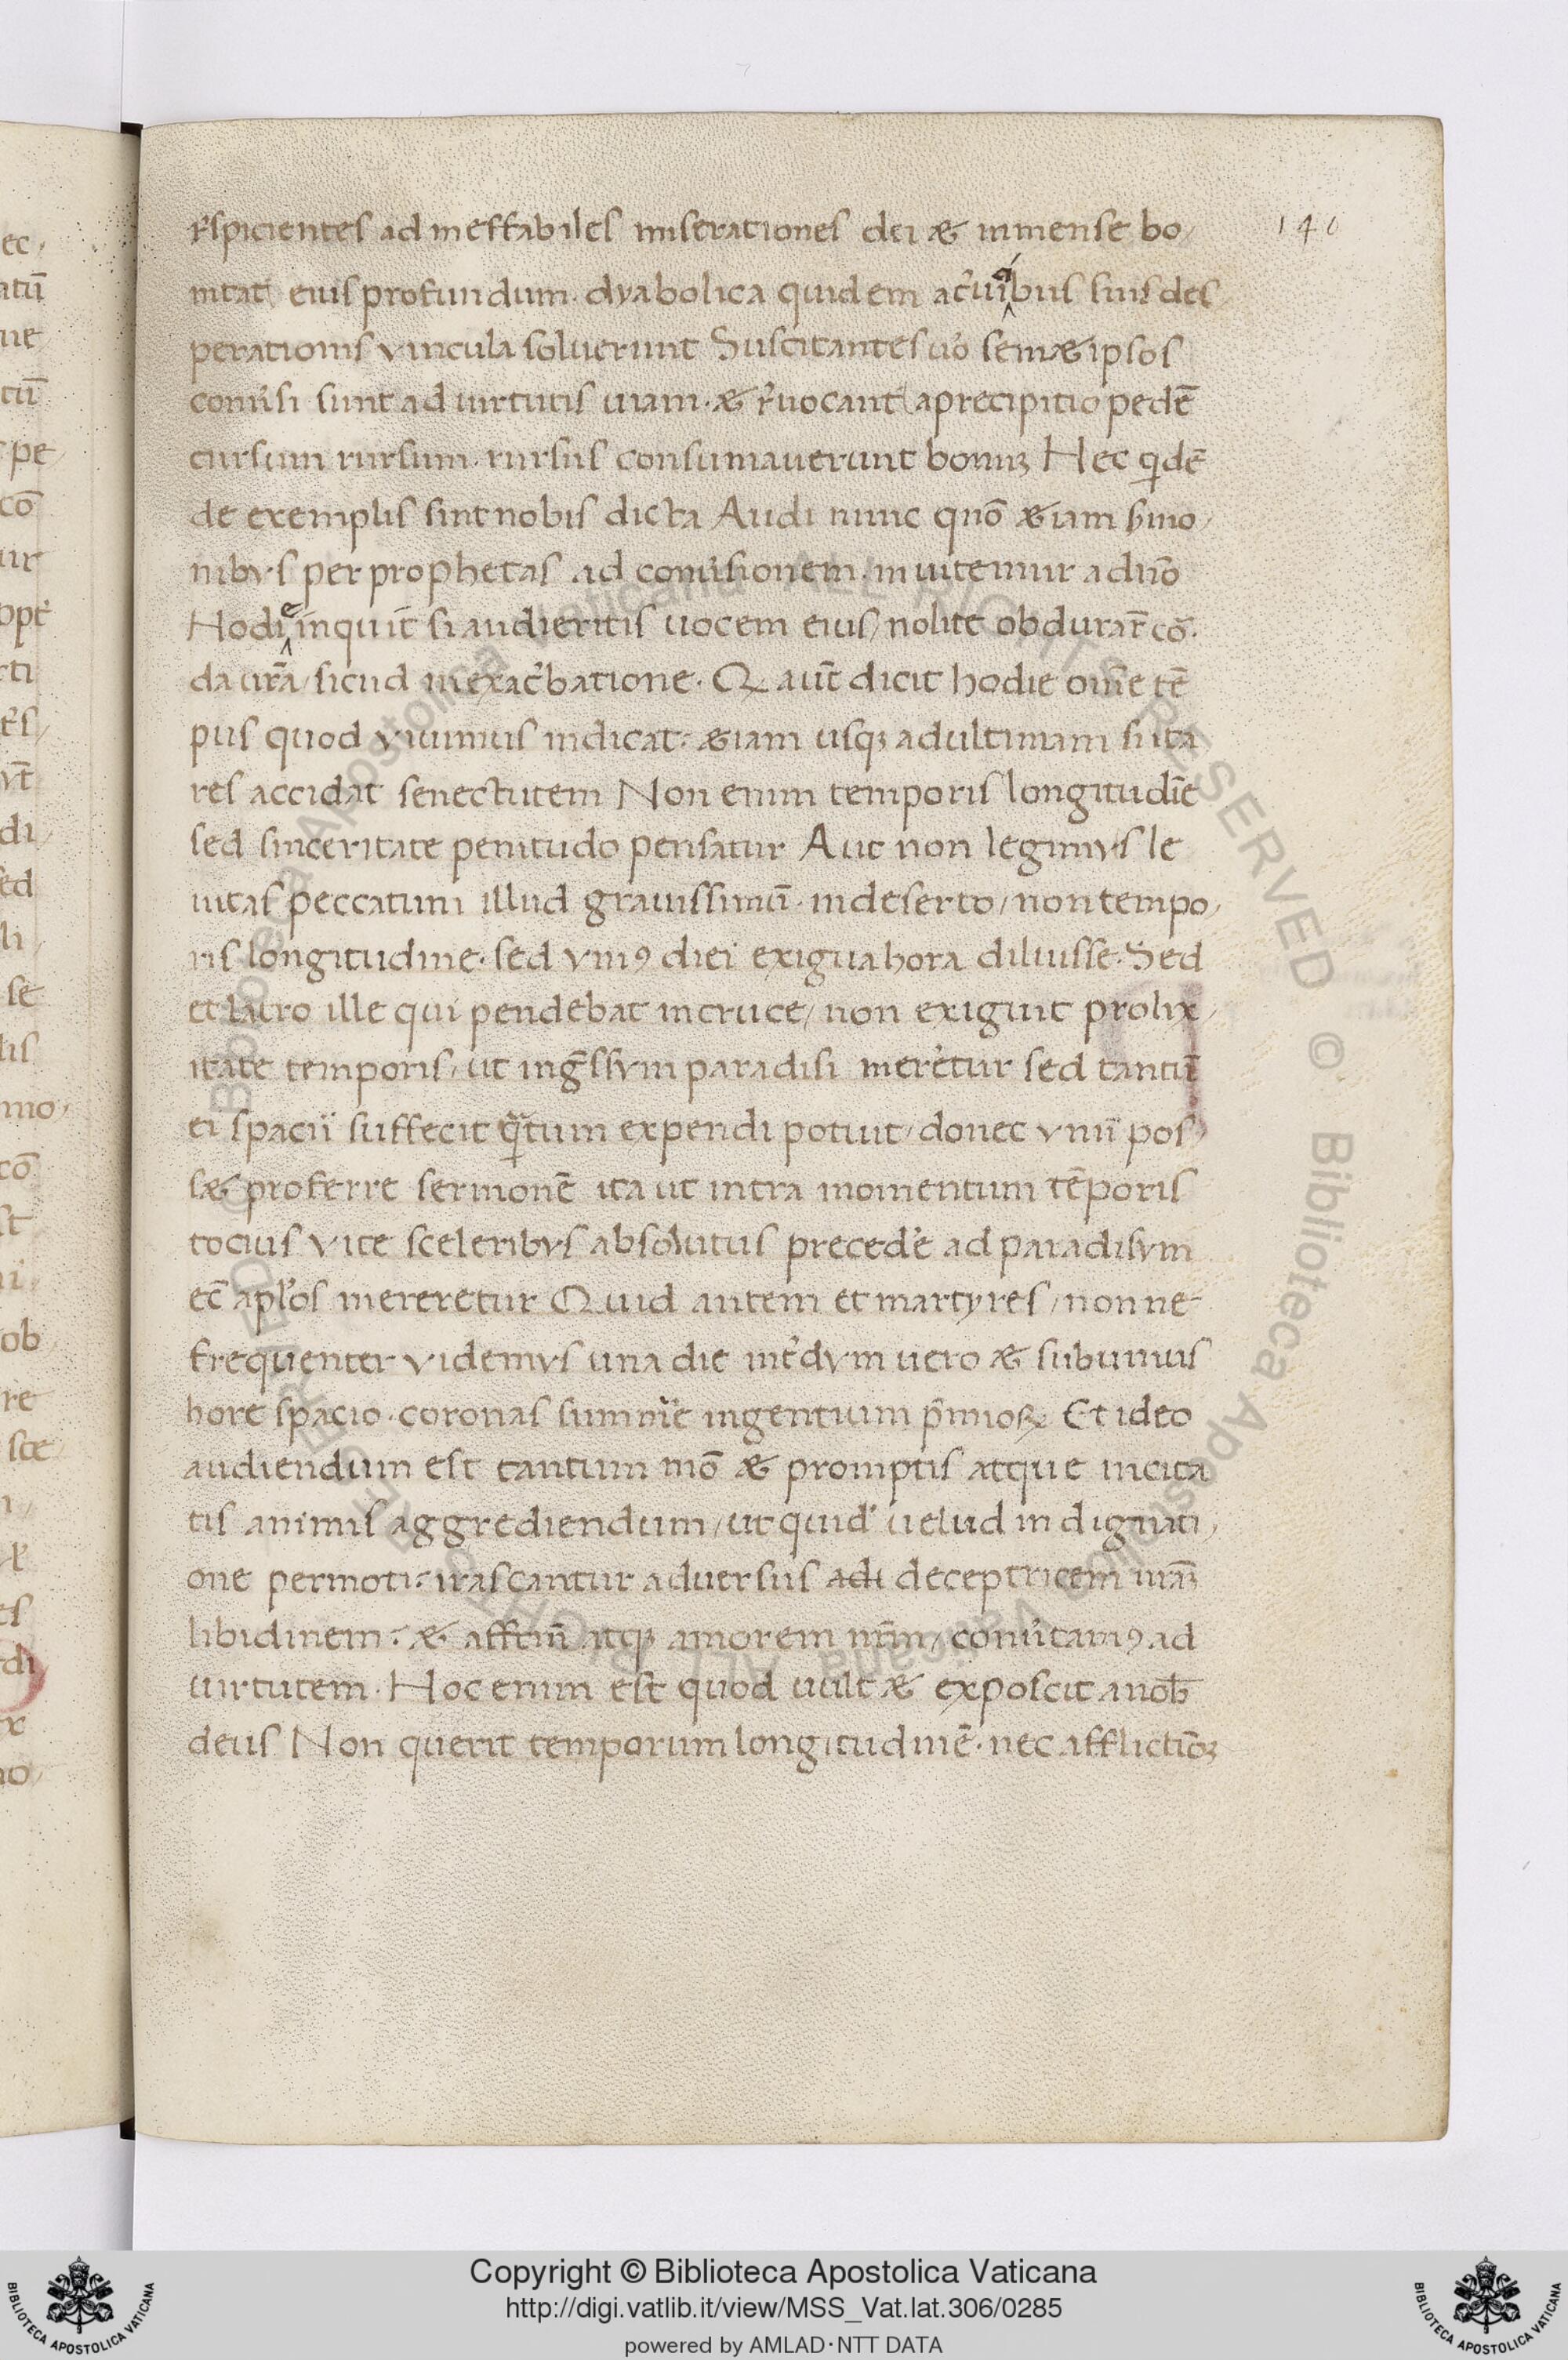 r̄spicientes ad ineffabiles miserationes dei & inmense bo/
nitat eius profundum. dyabolica quidem ac̉uíabus suis des
perationis vincula soluerunt Suscitantes uo̓ sem&ipsos
conu̓si sunt ad uirtutis uiam. & r̓uocant aprecipitio pedē
cursum rursum. rursus consumauerunt bonuꝫ Hec qͥdē
de exemplis sint nobis dicta Audi nunc quō &iam s̓mo/
nibus per prophetas ad conu̓sionem. inuitemur adn̄o
Hodie inquit si audieritis uocem eius/ nolite obdurar̄ cō.
da ur̄a/ sicud inexac̓batione. Q aūt dicit hodie om̄e tē
pus quod viuimus indicat. &iam usqꝫ adultimam si ita
res accidat senectutem Non enim temporis longitudīe
sed sinceritate penitudo pensatur Aut non legimus le
uitas peccatum illud grauissimū. indeserto/ non tempo/
ris longitudine. sed vniꝰ diei exigua hora diluisse. Sed
et latro ille qui pendebat incruce/ non exiguit prolix/
itate temporis/ ut ingr̄ssum paradisi mere̓tur sed tantū
ei spacii suffecit qͣtum expendi potuit/ donec vnū pos/
s& proferre sermonē ita ut intra momentum tēporis
tocius vite sceleribus absolutus precede̓ ad paradisum
ec̄ apl̓os mereretur Quid autem et martyres/ non ne
frequenter videmus una die int̓dum uero & subunius
hore spacio. coronas summe ingentium p̄mioꝝ Et ideo
audiendum est tantum mō & promptis atque incita
tis animis aggrediendum/ ut quid̓ uelud indignati/
one permoti. irascantur aduersus adi deceptricem
libidinem. & affcm̄ atqꝫ amorem nr̄m/ conu̓tamꝰ ad
uirtutem. Hoc enim est quod uult & exposcit a nob̄
deus Non querit temporum longitudinē. nec afflictiōꝫ
140
Copyright © Biblioteca Apostolica Vaticana
http://digi.vatlib.it/view/MSS_Vat.lat.306/0285
powered by AMLAD·NTT DATA